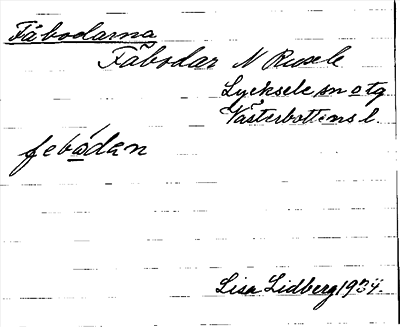 Fäbodarna
Fäbodar N Rusele
Lycksele sn o tg
Västerbottens l.
febɷ́dan
Lisa Lidberg 1934.